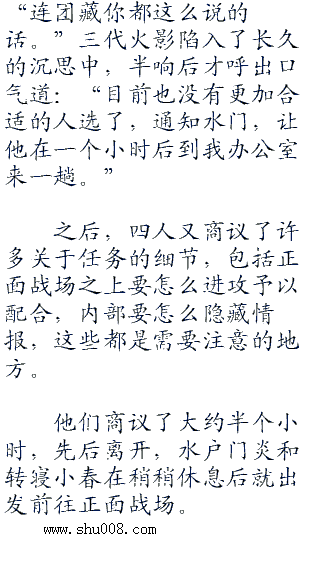 “连团藏你都这么说的
话。”三代火影陷入了长久
的沉思中，半响后才呼出口
气道：“目前也没有更加合
适的人选了，通知水门，让
他在一个小时后到我办公室
来一趟。”
之后，四人又商议了许
多关于任务的细节，包括正
面战场之上要怎么进攻予以
配合，内部要怎么隐藏情
报，这些都是需要注意的地
方。
他们商议了大约半个小
时，先后离开，水户门炎和
转寝小春在稍稍休息后就出
发前往正面战场。
www.shu008.com